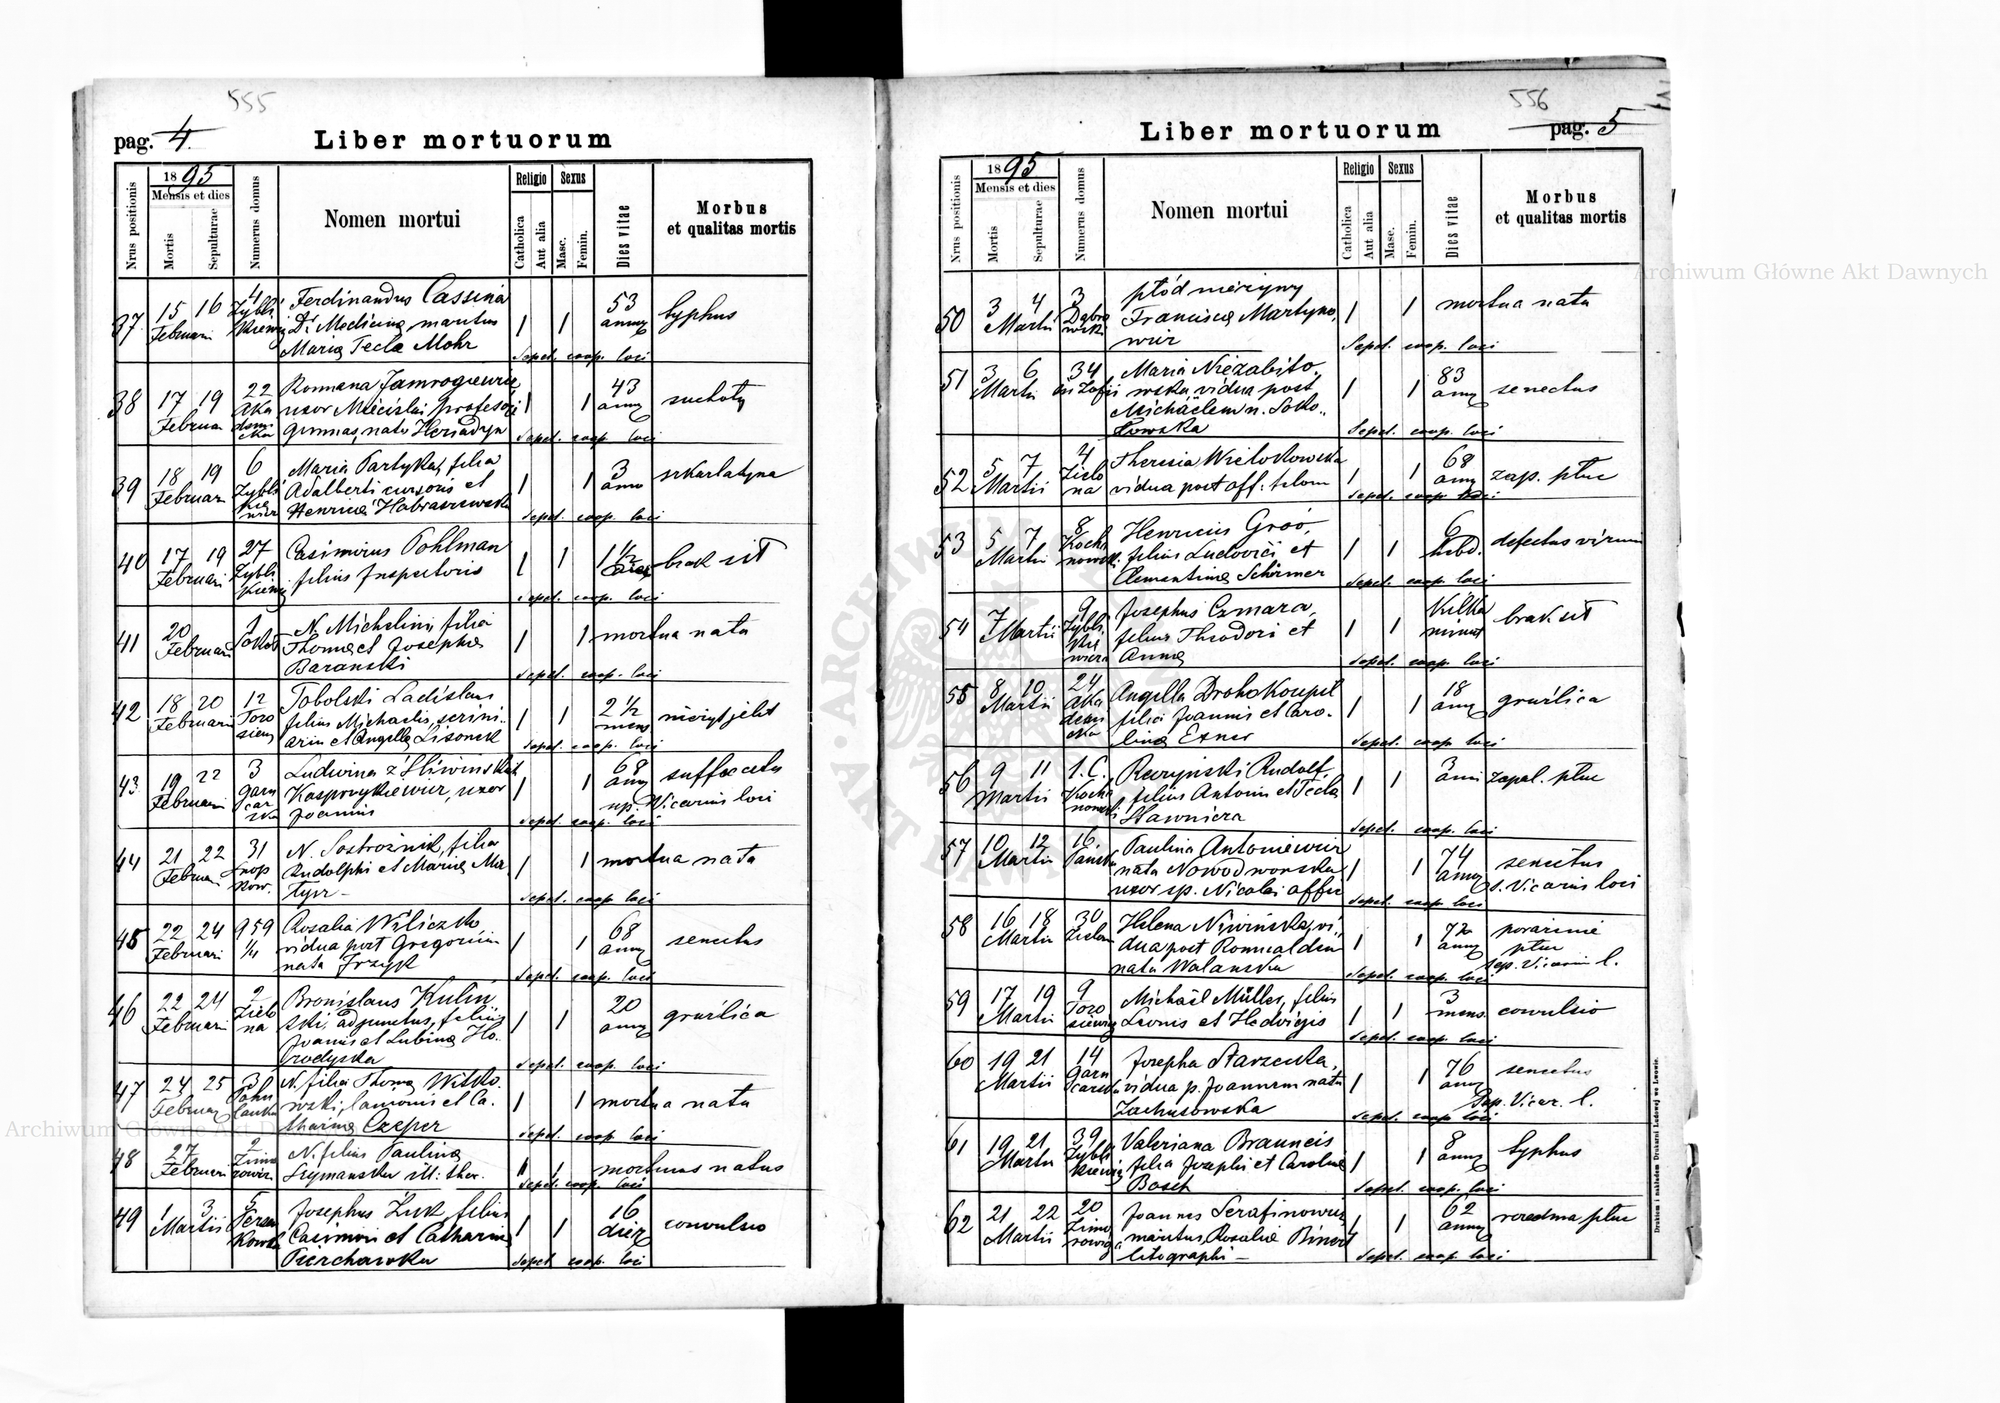 555
pag. 4
Liber mortuorum
Nrus positionis
1895
Mensis et dies
Mortis
Sepulturae
Numerus domus
Nomen mortui
Religio
Catholica
Aut alia
Sexus
Masc.
Femin.
Dies vitae
Morbus
et qualitas mortis
37 15 16 4 Ferdinandus Cassina 53 typhus
Februari Dr Medicinę maritus 1 1 annų
Marię Tecla Mohr
Sepel. coop. loci
38 17 19 22 Romana Jamrogiewicz 43 suchoty
Februari Aka uxor Miecislai profesori 1 1
demi
cka gymnas, nata
Sepel. coop. loci
39 18 19 6 Maria Partyka, filia 3 szkarlatyna
Februari Adalberti cursoris et 1 1
Henricę
Sepel. coop. loci
40 17 19 27 Casimirus Pohlman 1 1/2 brak sił
Februari filius Inspectoris 1 1
Sepel. coop. loci
41 20 1 N. Michelini filia
Februari Thomę et Josephę 1 1 mortua nata
Baranski
Sepel. coop. loci
42 18 20 12 Tobolski Ladislaus 2 1/2
Februari Toro filius Michaelis, scrini 1 1 mens nieżyt jelit
siew arii et Angellę Lisoniek
Sepel. coop. loci
43 19 22 3 Ludwina z Śliwińskich 68 suffocatus
Februari Garn Kasprzykiewicz, uxor 1 1
car
ska Joannis Vicarius loci
Sepel. coop. loci
44 21 22 31 N. Sostrożnik, filia
Februari Rudolphi et Marię Ma 1 1 mortua nata
tysr
Sepel. coop. loci
45 22 24 959 Rosalia Wiliczko 68
Februari 1/4 vidua post Gregorium 1 1 senectus
nata Irzyk
Sepel. coop. loci
46 22 24 2 Bronislaus Kuliń 20
Februari Zielo ski, adjunctus, filius 1 1 gruźlica
na Joannis et Lubinę Ho
rodyska
Sepel. coop. loci
47 24 25 3 N. filia Thomę Witko
Februari wski, lanionis et Ca 1 1 mortua nata
tharinę Casper
Sepel. coop. loci
48 27 2 N. filius Paulinę
Februari Zimo
rowicz Szymanska 1 1 mortuus natus
Sepel. coop. loci
49 1 3 5 Josephus Żuk filius 16
Martii Casimiri et Catharinę 1 1 dies convulsio
Pierchawka
Sepel. coop. loci
556
pag. 5
Liber mortuorum
Nrus positionis
1895
Mensis et dies
Mortis
Sepulturae
Numerus domus
Nomen mortui
Religio
Catholica
Aut alia
Sexus
Masc.
Femin.
Dies vitae
Morbus
et qualitas mortis
50 3 4 3 płód nieżywy
Martii Franciscę Martyno 1 1 mortua nata
wicz
Sepel. coop. loci
51 3 6 34 Maria Niezabito 83
Martii św Zofii wska vidua post 1 1 senectus
Michaëlem n. Soko
łowska
Sepel. coop. loci
52 5 7 4 Theresia 68
Martii Zielo
na vidua post off: telon 1 1 zap. płuc
Sepel. coop. loci
53 5 7 8 Henricus Groó, 6
Martii Kocha
nowsk. filius Ludovici et 1 1 hebd. defectus virium
Clementinę Schirmer
Sepel. coop. loci
54 7 9 Josephus Czmara, kilka
Martii filius Theodori et 1 1 minut brak sił
Annę
Sepel. coop. loci
55 8 10 24 Angella Drohokoupil 18
Martii Aka
demi
cka filia Joannis et Caro 1 1 gruźlica
linę Exner
Sepel. coop. loci
56 9 11 1.C. Raczyński Rudolf, 3
Martii Kocha filius Antonii et Tecla 1 1 zapal. płuc
Sepel. coop. loci
57 10 12 16 Paulina Antoniewicz 74 senectus
Martii nata Nowodworska 1 1 s. Vicarius loci
uxor sp. Nicolai offic
Sepel. coop. loci
58 16 18 30 Helena Niwińska, vi 72 porażenie
Martii Zielon dua post Romualdum 1 1 płuc
nata Walanska Sep. Vicarius l.
Sepel. coop. loci
59 17 19 9 Michaël Müller, filius 3
Martii Toro
siewicz Leonis et Hedvigis 1 1 mens. convulsio
Sepel. coop. loci
60 19 21 14 Josepha Starzecka, 76 senectus
Martii Garn
carska vidua p. Joannem nata 1 1
Zachusowska Sep. Vicar. l.
Sepel. coop. loci
61 19 21 39 Valeriana Brauneis 8
Martii filia Josephi et Carolinę 1 1 typhus
Bosch
Sepel. coop. loci
62 21 22 20 Joannes Serafinowicz 62
Martii Zimo
rowicz maritus Rosalię Binert 1 1 rozedma płuc
litographi
Sepel. coop. loci
Drukiem i nakładem Drukarni Ludowej we Lwowie.
Archiwum Główne Akt Dawnych
Archiwum Główne Akt Dawnych